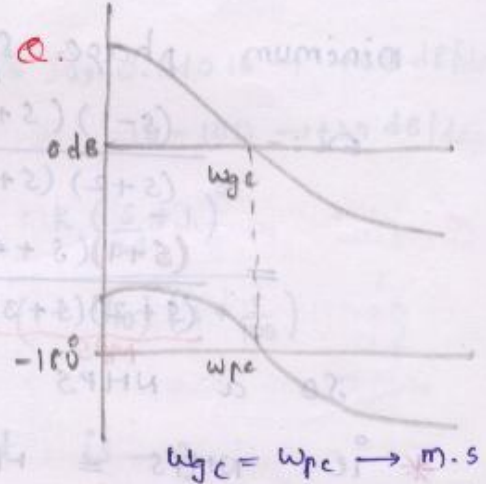 Q.
0 dB
wgc
-180°
wpc
wgc = wpc → m.s